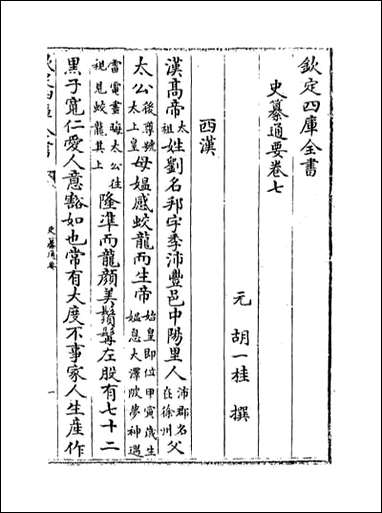 欽定四庫全書
史纂通要卷七
元 胡一桂 撰
西漢
漢高帝太祖姓劉名邦字季沛豐邑中陽里人沛郡名在徐州父
太公後尊號太上皇母媪感蛟龍而生帝始皇即位甲寅歲生媪息大澤陂夢神遇
雷電晝晦太公往視見蛟龍其上隆準而龍顔美鬚髯左股有七十二
黒子寛仁愛人意豁如也常有大度不事家人生産作
史纂通要
一